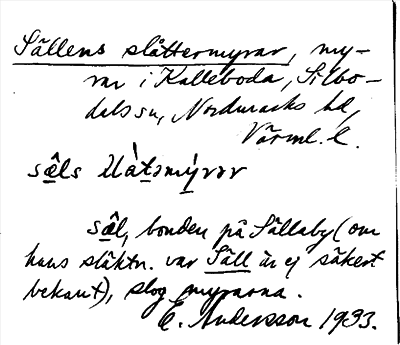 Sällens slåttermyrar, my-
rar i Kalleboda, Silbo-
dals sn, Nordmarks hd,
Värml. l.
sæls slåtsmýrar
sæl, bonden på Sällaby (om
hans släktn. var Säll är ej säkert
bekant), slog myrarna.
E. Andersson 1933.